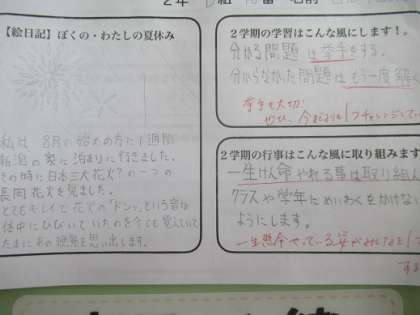 2年
【絵日記】ぼくの・わたしの夏休み
私は 8月の始めの方に1週間
新潟の家に泊まりに行きました。
その時に日本三大花火?の一つの
長岡花火を見ました。
とてもキレイで花火の「ドンッ」という音が
体中にひびいていたのを今でも覚えていて
たまにあの絶景を思い出します。
2学期の学習はこんな風にします!。
分かる問題は挙手をする。
分からなかった問題はもう一度解
挙手も大切!
2学期の行事はこんな風に取り組みます
一生けん命やれる事は取り組ん
クラスや学年にめいわくをかけない
ようにします。
一生懸命やっている姿が